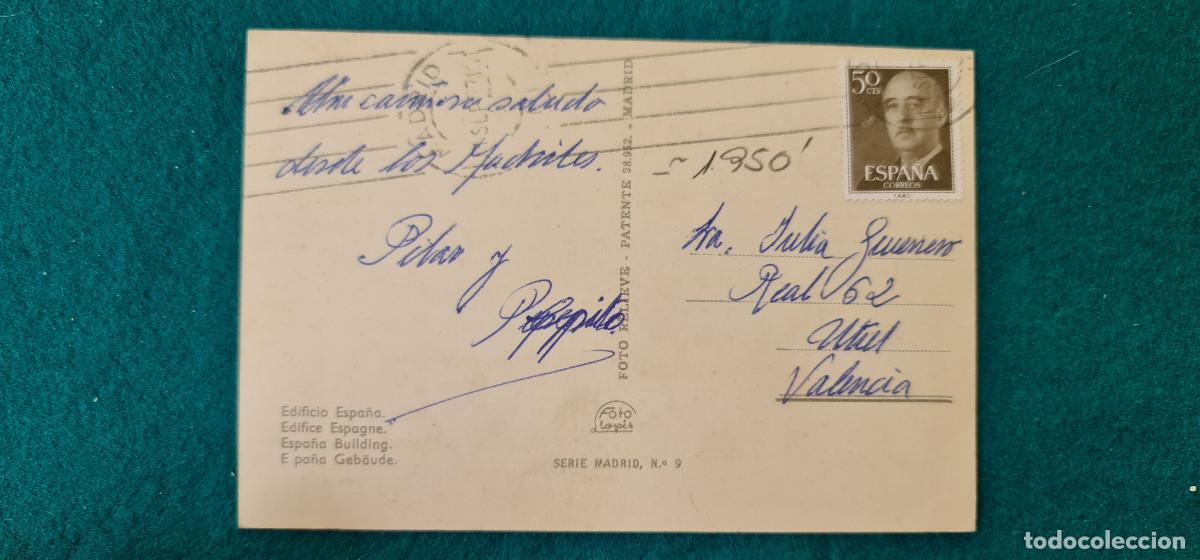 MADRID
Una cariñoso saludo
desde los Madriles.
Pilar y
Pepito.
Edificio España.
Edifice Espagne.
España Building.
E paña Gebäude.
FOTO RELIEVE - PATENTE 38.952. - MADRID
Foto
Lopis
SERIE MADRID, N.º 9
50
CTS
ESPAÑA
CORREOS
- 1.950'
Sra. Julia Guerrero
Real 62
Utiel
Valencia
todocoleccion